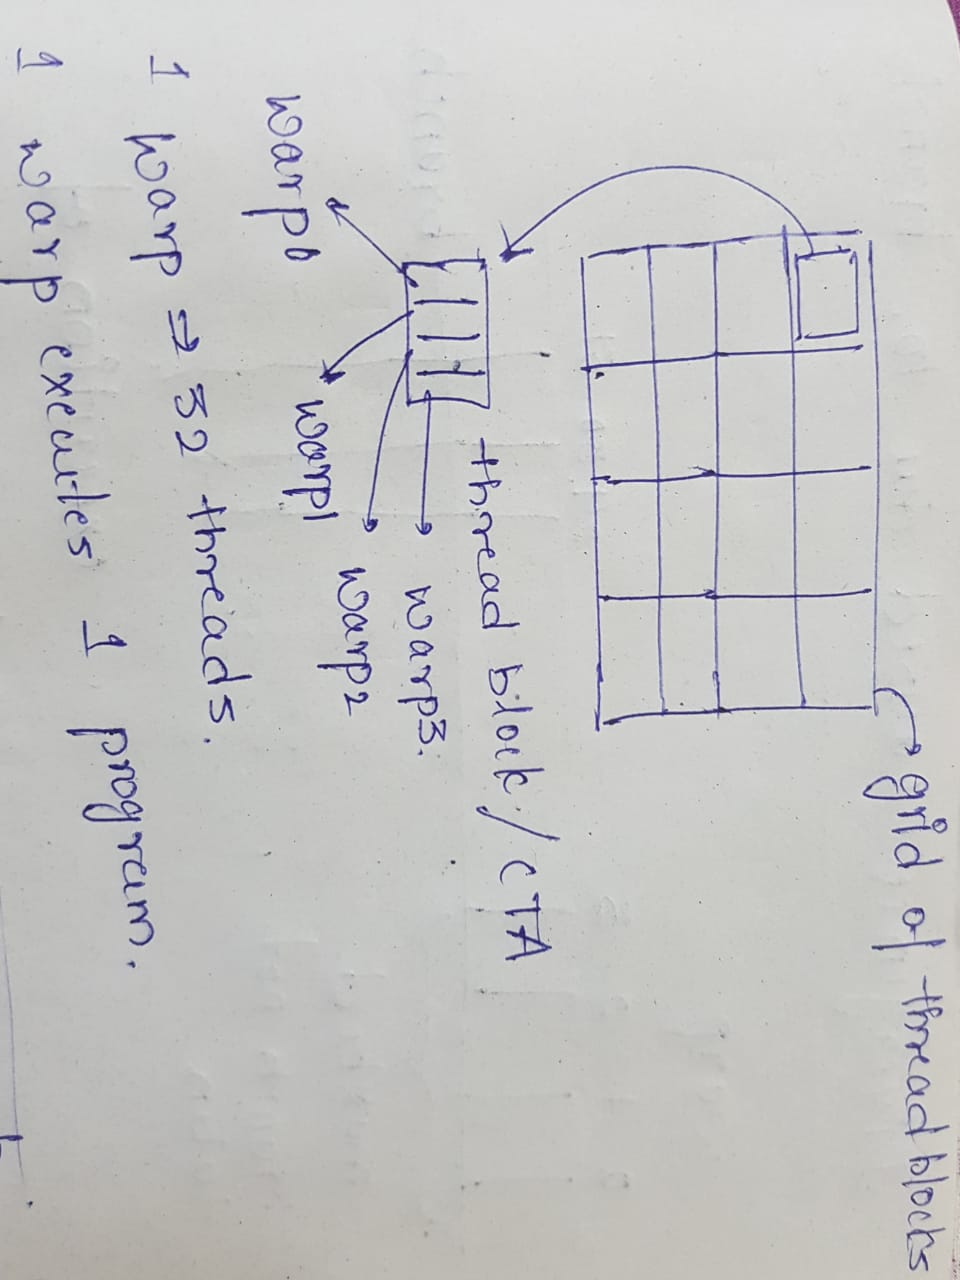 grid of thread blocks
thread block / CTA
warp3.
warp2
warp1
warp0
1 warp ⇒ 32 threads.
1 warp executes 1 program.